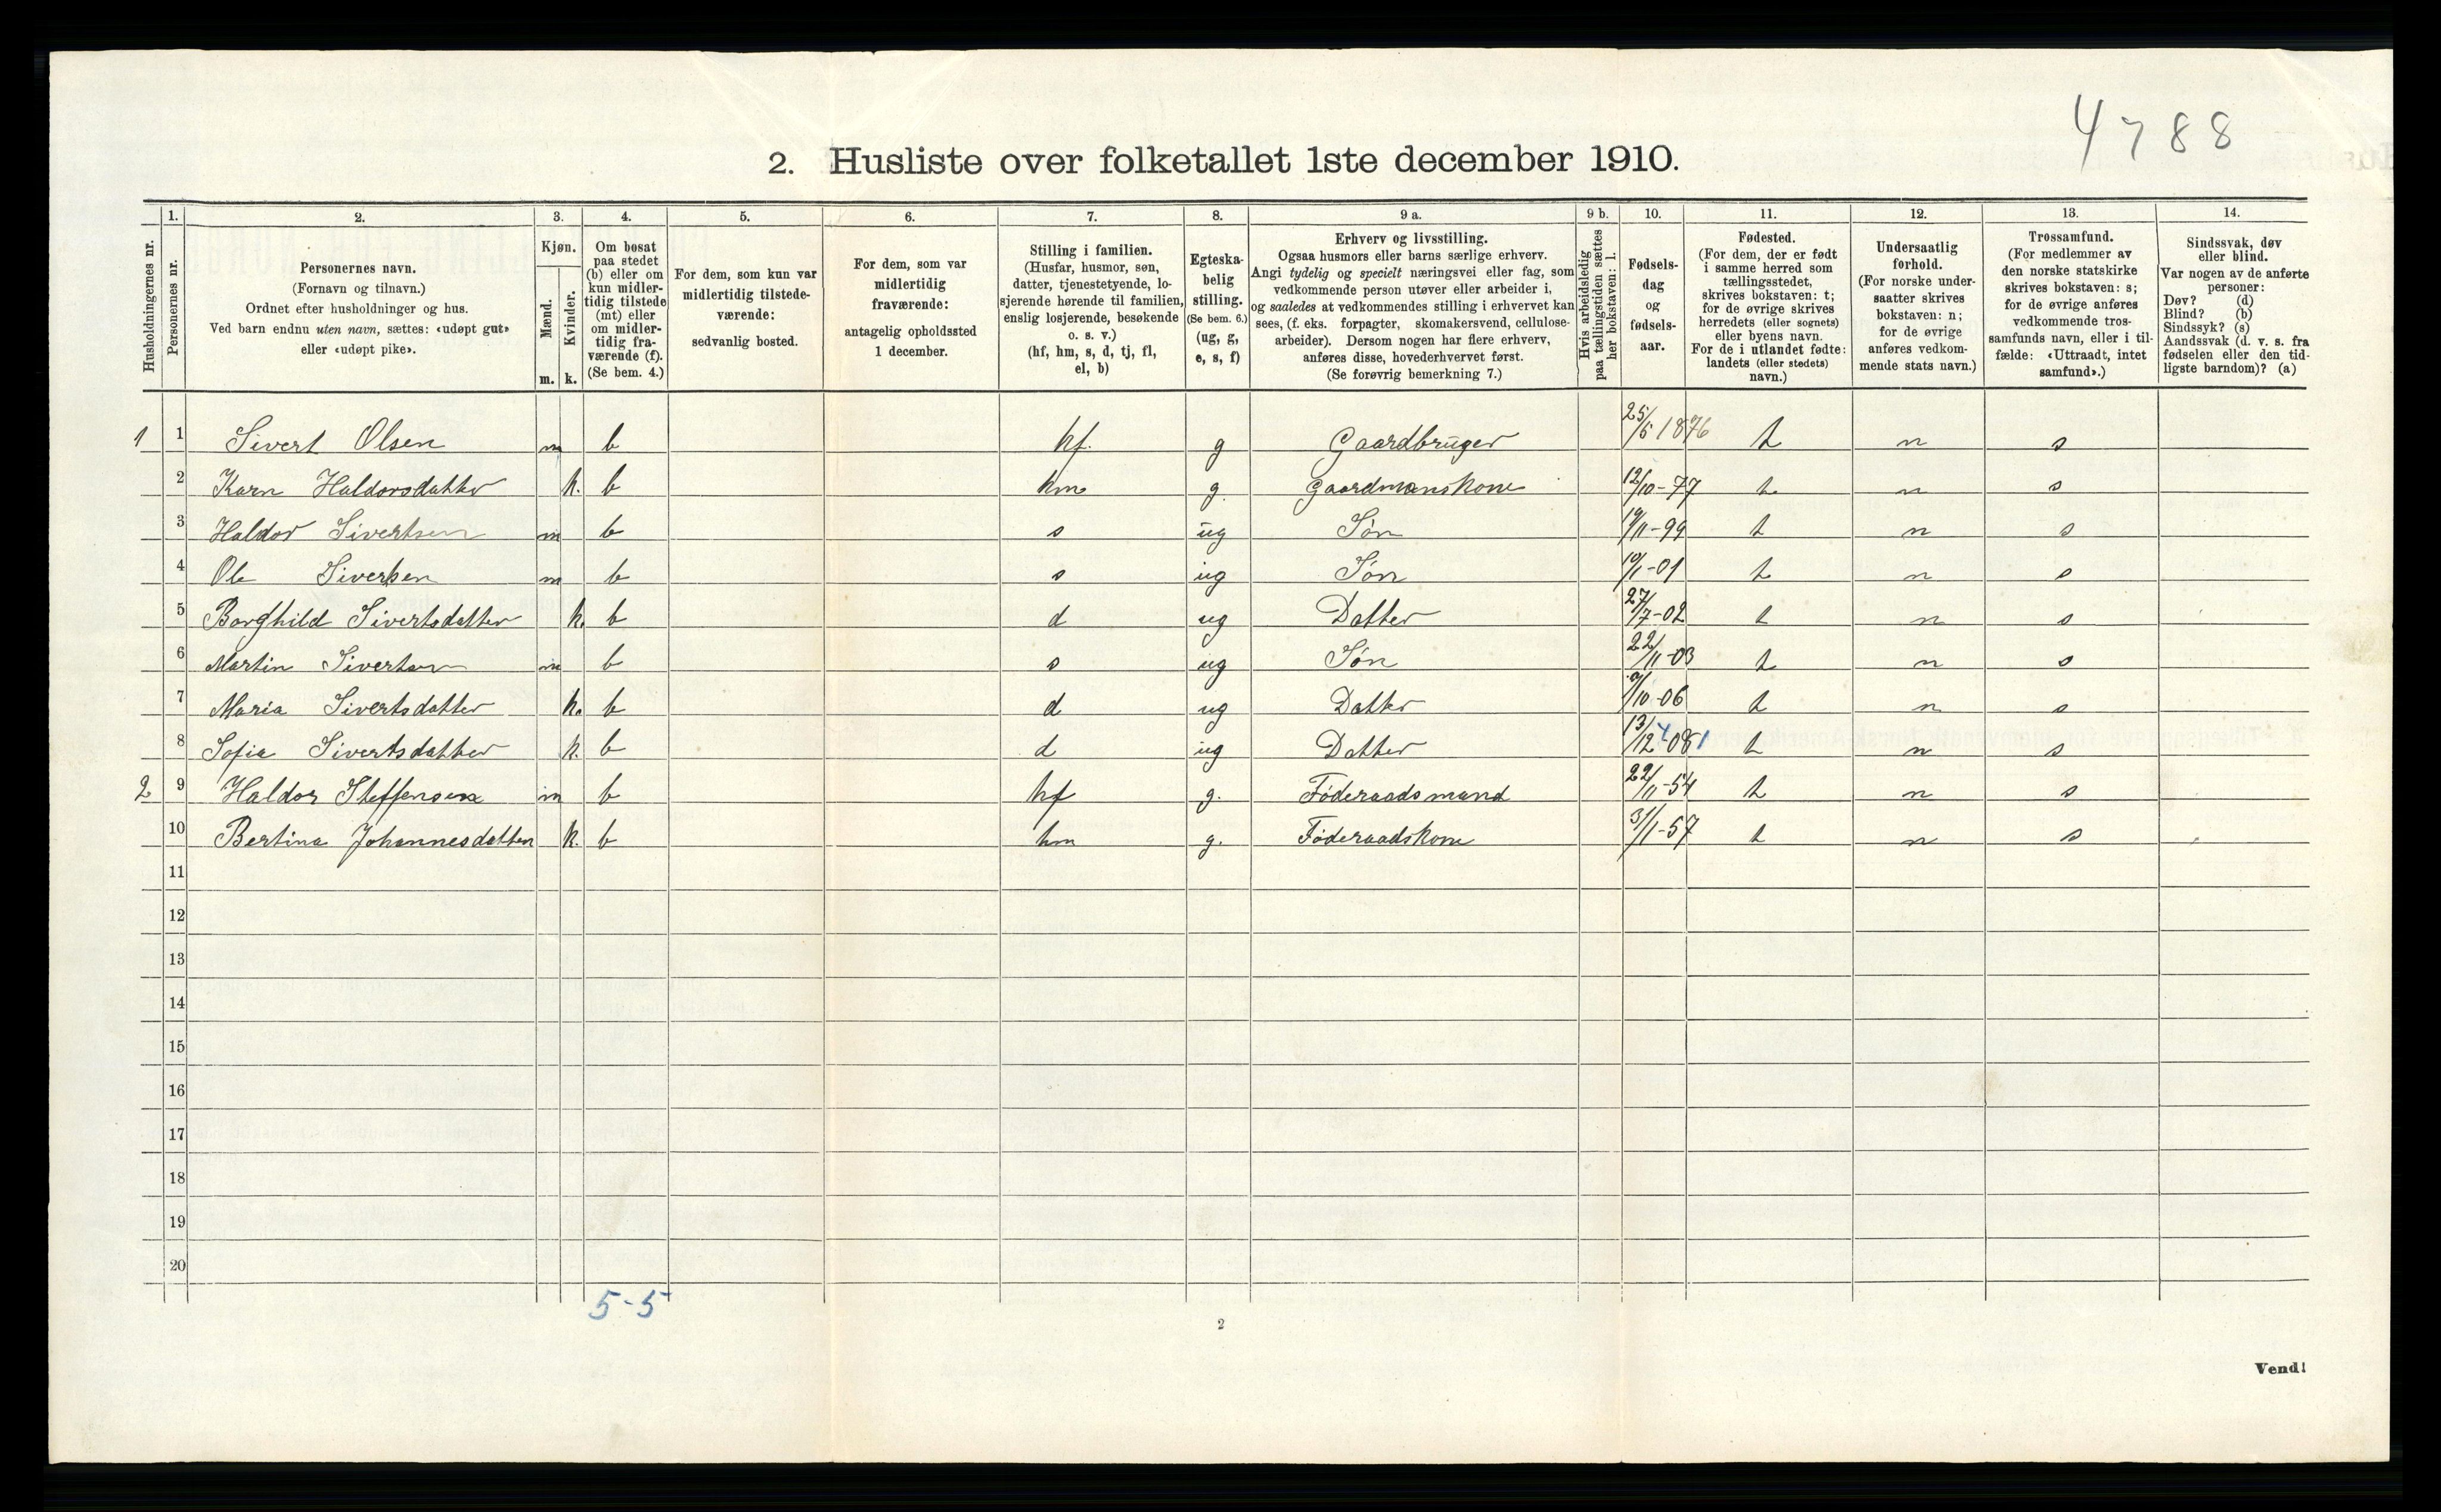 4788
2. Husliste over folketallet 1ste december 1910.
Husholdningernes nr.
1. Personernes nr.
2. Personernes navn.
(Fornavn og tilnavn.)
Ordnet efter husholdninger og hus.
Ved barn endnu uten navn, sættes: «udøpt gut»
eller «udøpt pike».
3. Kjøn.
Mænd. m.
Kvinder. k.
4. Om bosat
paa stedet
(b) eller om
kun midler-
tidig tilstede
(mt) eller
om midler-
tidig fra-
værende (f).
(Se bem. 4.)
5. For dem, som kun var
midlertidig tilstede-
værende:
sedvanlig bosted.
6. For dem, som var
midlertidig
fraværende:
antagelig opholdssted
1 december.
7. Stilling i familien.
(Husfar, husmor, søn,
datter, tjenestetyende, lo-
sjerende hørende til familien,
enslig losjerende, besøkende
o. s. v.)
(hf, hm, s, d, tj, fl,
el, b)
8. Egteska-
belig
stilling.
(Se bem. 6.)
(ug, g,
e, s, f)
9 a. Erhverv og livsstilling.
Ogsaa husmors eller barns særlige erhverv.
Angi tydelig og specielt næringsvei eller fag, som
vedkommende person utøver eller arbeider i,
og saaledes at vedkommendes stilling i erhvervet kan
sees, (f. eks. forpagter, skomakersvend, cellulose-
arbeider). Dersom nogen har flere erhverv,
anføres disse, hovederhvervet først.
(Se forøvrig bemerkning 7.)
9 b. Hvis arbeidsledig
paa tællingstiden sættes
her bokstaven: l.
10. Fødsels-
dag
og
fødsels-
aar.
11. Fødested.
(For dem, der er født
i samme herred som
tællingsstedet,
skrives bokstaven: t;
for de øvrige skrives
herredets (eller sognets)
eller byens navn.
For de i utlandet fødte:
landets (eller stedets)
navn.)
12. Undersaatlig
forhold.
(For norske under-
saatter skrives
bokstaven: n;
for de øvrige
anføres vedkom-
mende stats navn.)
13. Trossamfund.
(For medlemmer av
den norske statskirke
skrives bokstaven: s;
for de øvrige anføres
vedkommende tros-
samfunds navn, eller i til-
fælde: «Uttraadt, intet
samfund».)
14. Sindssvak, døv
eller blind.
Var nogen av de anførte
personer:
Døv? (d)
Blind? (b)
Sindssyk? (s)
Aandssvak (d. v. s. fra
fødselen eller den tid-
ligste barndom)? (a)
1 1 Sivert Olsen m b hf. g Gaardbruger 25/5 1876 t n s
2 Karn Haldorsdatter k. b hm g. Gaardmanskone 12/10-77 t n s
3 Haldor Sivertsen m b s ug Søn 19/11-99 t n s
4 Ole Sivertsen m b s ug Søn 10/1-01 t n s
5 Borghild Sivertsdatter k. b d ug Datter 27/7-02 t n s
6 Martin Sivertsen m b s ug Søn 22/11-03 t n s
7 Maria Sivertsdatter k. b d ug Datter 9/10-06 t n s
8 Sofie Sivertsdatter k. b d ug Datter 13/12 08 t n s
2 9 Haldor Steffensen m b hf g. Føderaadsmand 22/11-54 t n s
10 Bertina Johannesdatter k. b hm g. Føderaadskone 31/1-57 t n s
11
12
13
14
15
16
17
18
19
20
5-5
2
Vend!